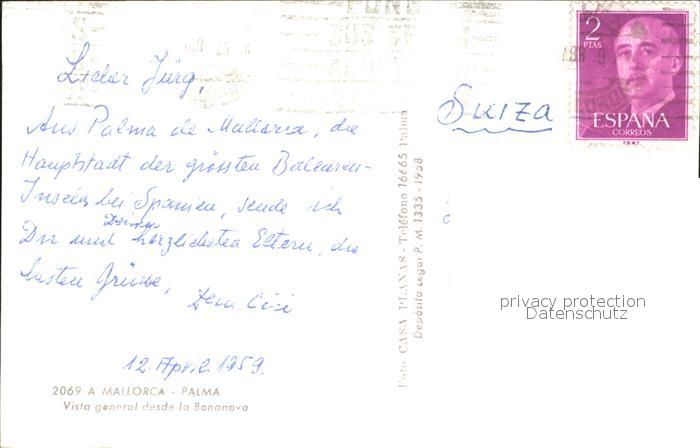 Lieber Jürg,
Aus Palma de Mallorca, die
Hauptstadt der grössten Balearen-
Inseln bei Spanien, sende ich
Dir und Deinen herzlichsten Eltern, die
besten Grüsse,
Dein
12. April 1959.
2069 A MALLORCA - PALMA
Vista general desde la Bonanova
Foto CASA PLANAS - Teléfono 16665 Palma
Depósito Legal P. M. 1335 - 1958
SUIZA
2
PTAS
ESPAÑA
CORREOS
privacy protection
Datenschutz